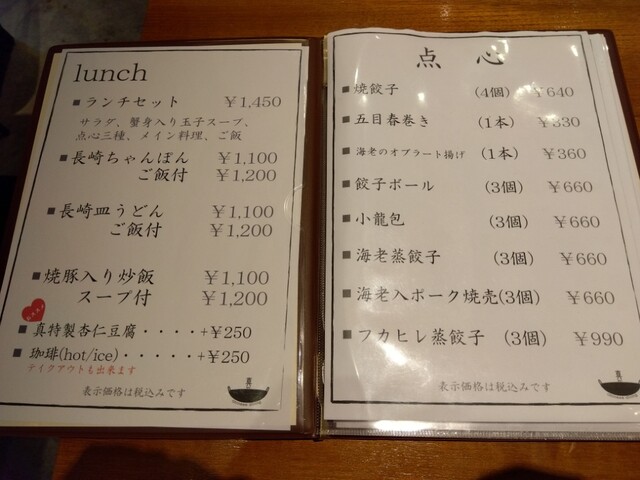 lunch
■ランチセット ￥1,450
サラダ、蟹身入り玉子スープ、
点心三種、メイン料理、ご飯
■長崎ちゃんぽん ￥1,100
ご飯付 ￥1,200
■長崎皿うどん ￥1,100
ご飯付 ￥1,200
■焼豚入り炒飯 ￥1,100
スープ付 ￥1,200
■真特製杏仁豆腐・・・・+￥250
■珈琲(hot/ice)・・・・・+￥250
テイクアウトも出来ます
表示価格は税込みです
点心
■焼餃子 (4個) ￥640
■五目春巻き (1本) ￥330
■海老のオブラート揚げ (1本) ￥360
■餃子ボール (3個) ￥660
■小龍包 (3個) ￥660
■海老蒸餃子 (3個) ￥660
■海老入ポーク焼売(3個) ￥660
■フカヒレ蒸餃子 (3個) ￥990
表示価格は税込みです